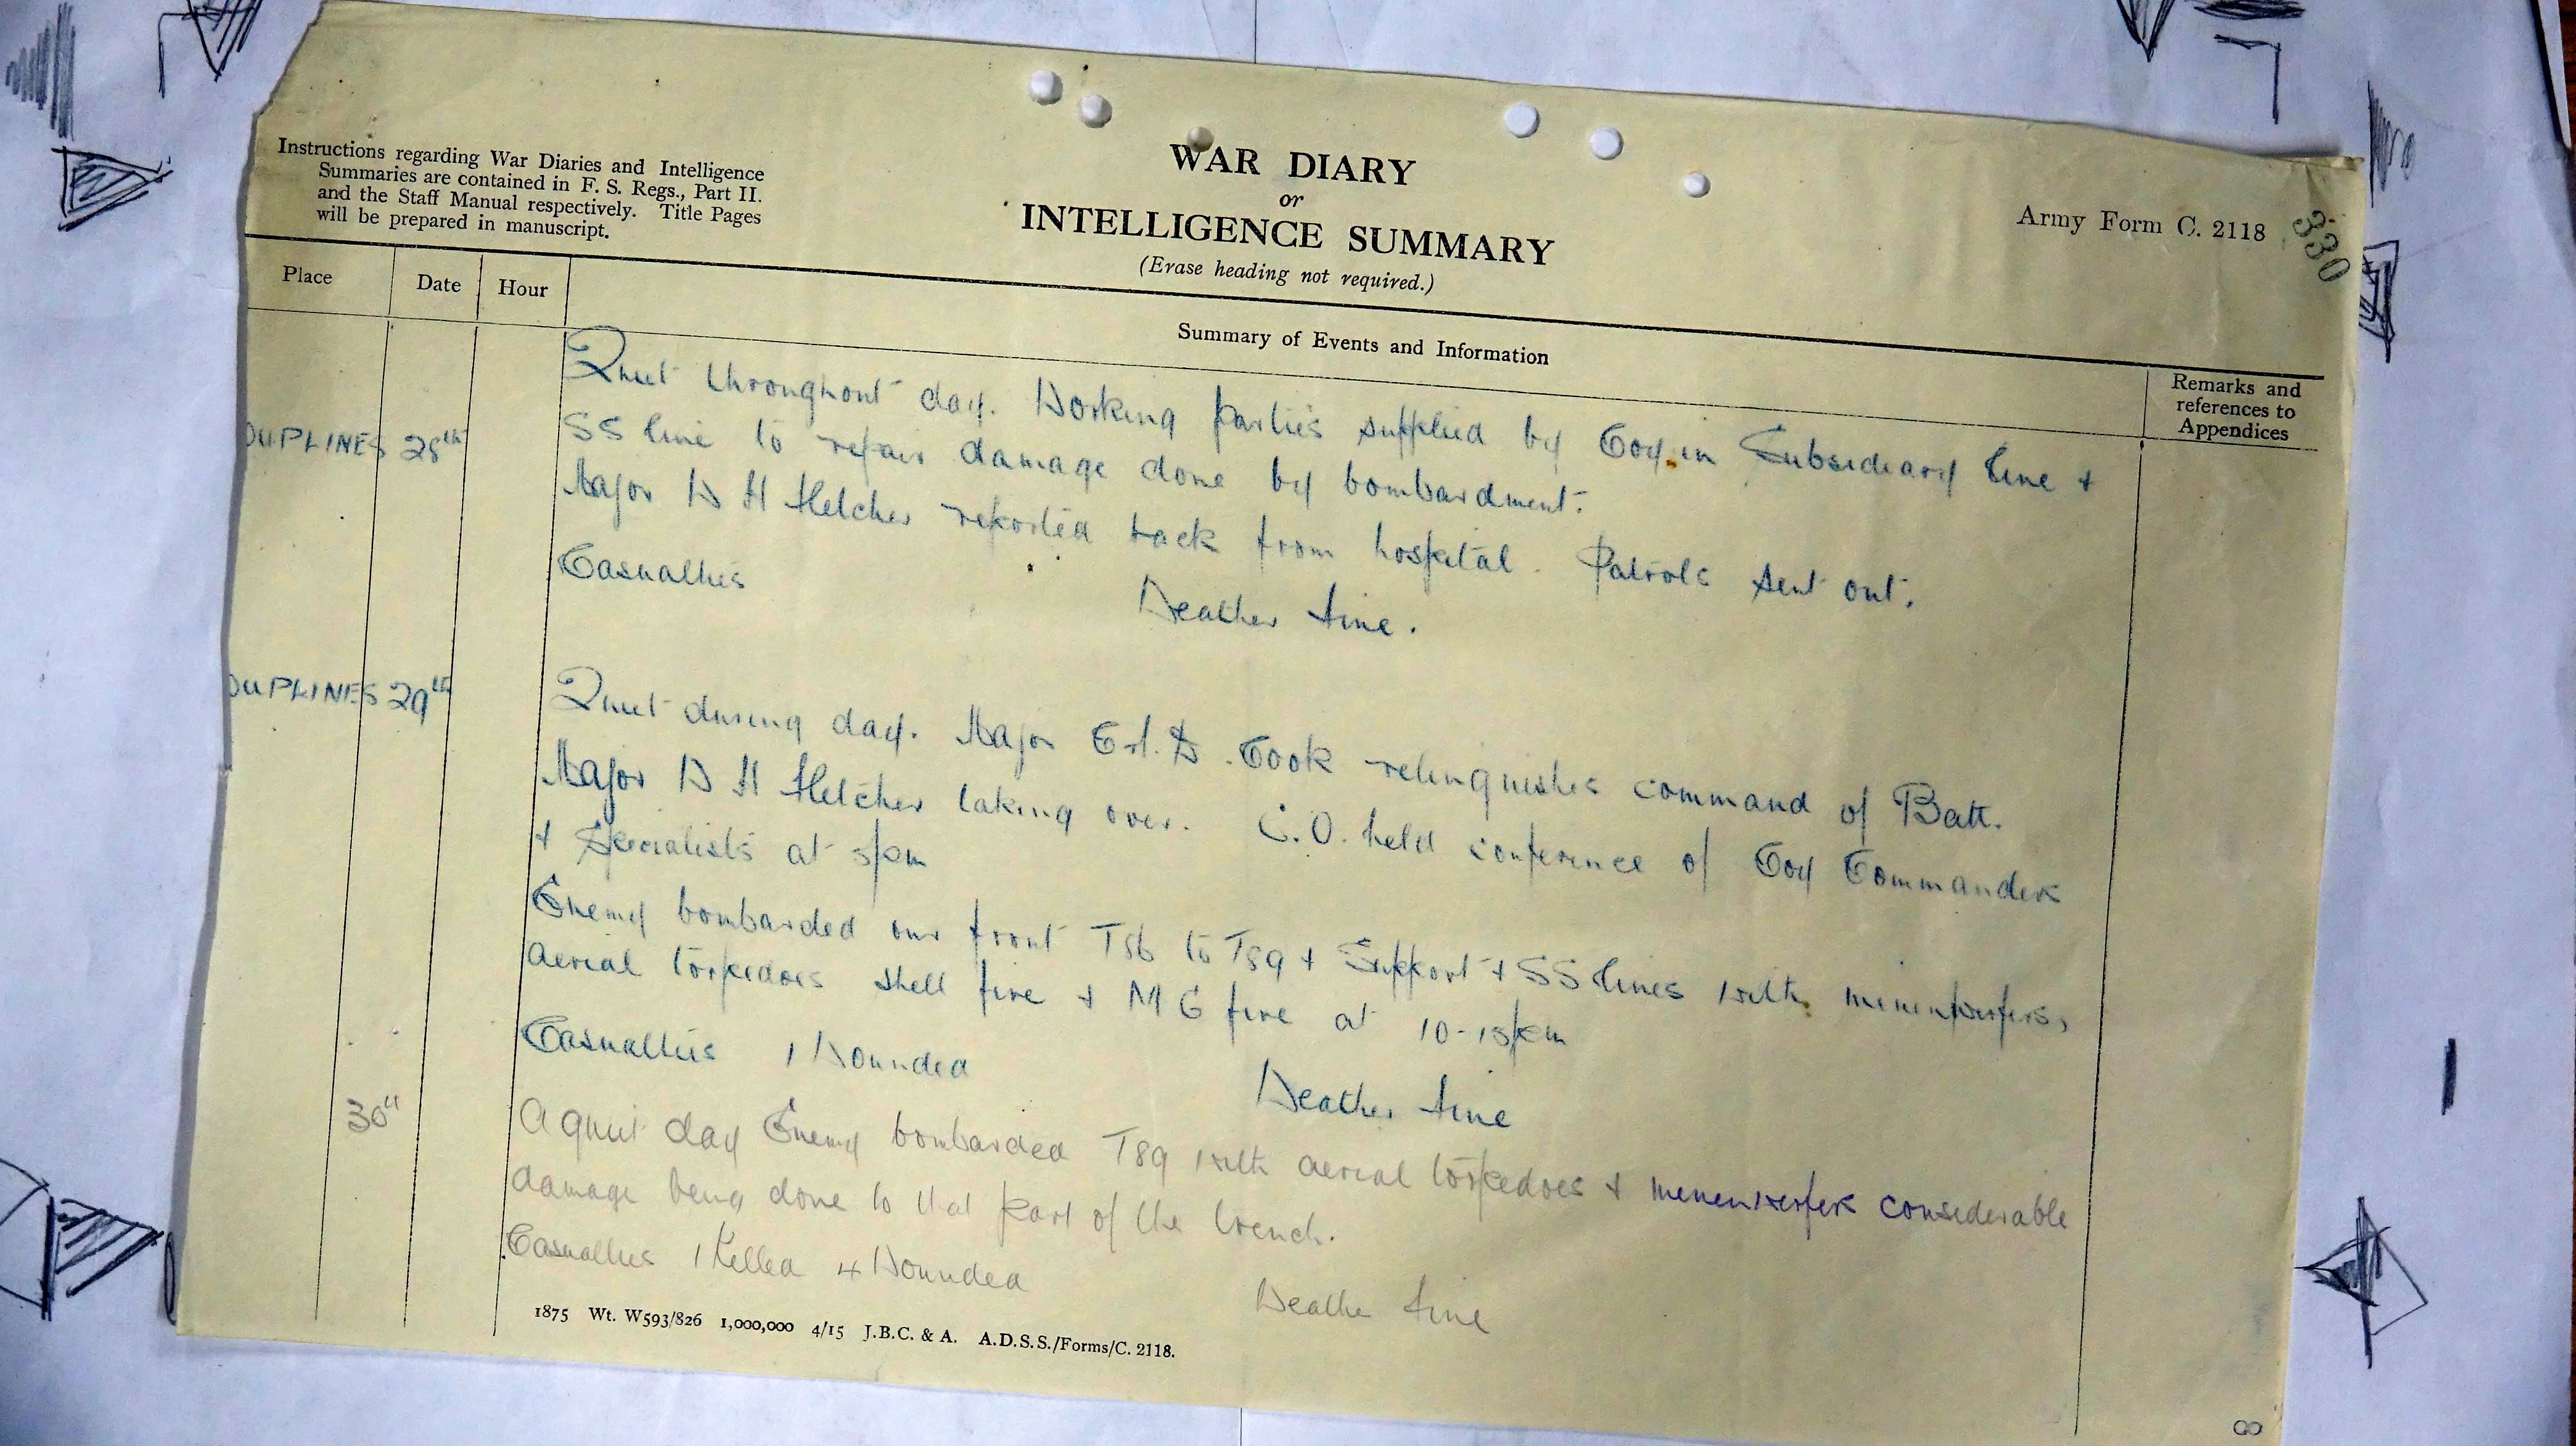 Instructions regarding War Diaries and Intelligence
Summaries are contained in F. S. Regs., Part II.
and the Staff Manual respectively. Title Pages
will be prepared in manuscript.
WAR DIARY
or
INTELLIGENCE SUMMARY
(Erase heading not required.)
Army Form C. 2118
330
Place
Date
Hour
Summary of Events and Information
Remarks and
references to
Appendices
OUPLINES 28th
Quiet throughout day. Working parties supplied by Coy. in Subsidiary line +
SS line to repair damage done by bombardment.
Major W H Fletcher reported back from hospital. Patrols sent out.
Casualties
Weather fine.
OUPLINES 29th
Quiet during day. Major Cook relinquishes command of Batt.
Major W H Fletcher taking over. C.O. held conference of Coy Commanders
+ Specialists at 5pm
Enemy bombarded our front T86 to T89 + Support + SS lines with minenwerfers,
aerial torpedoes shell fire + M G fire at 10-15pm
Casualties 1 Wounded
Weather fine
30"
A quiet day Enemy bombarded T89 with aerial torpedoes + minenwerfers considerable
damage being done to that part of the trench.
Casualties 1 Killed 4 Wounded
Weathe fine
1875 Wt. W593/826 1,000,000 4/15 J.B.C. & A. A.D.S.S./Forms/C. 2118.